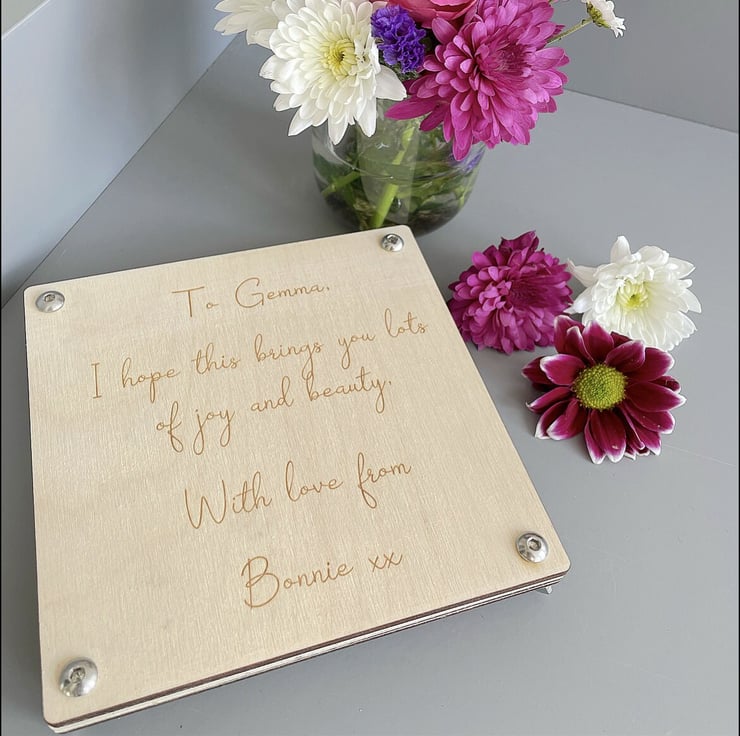 To Gemma,
I hope this brings you lots
of joy and beauty.
With love from
Bonnie xx